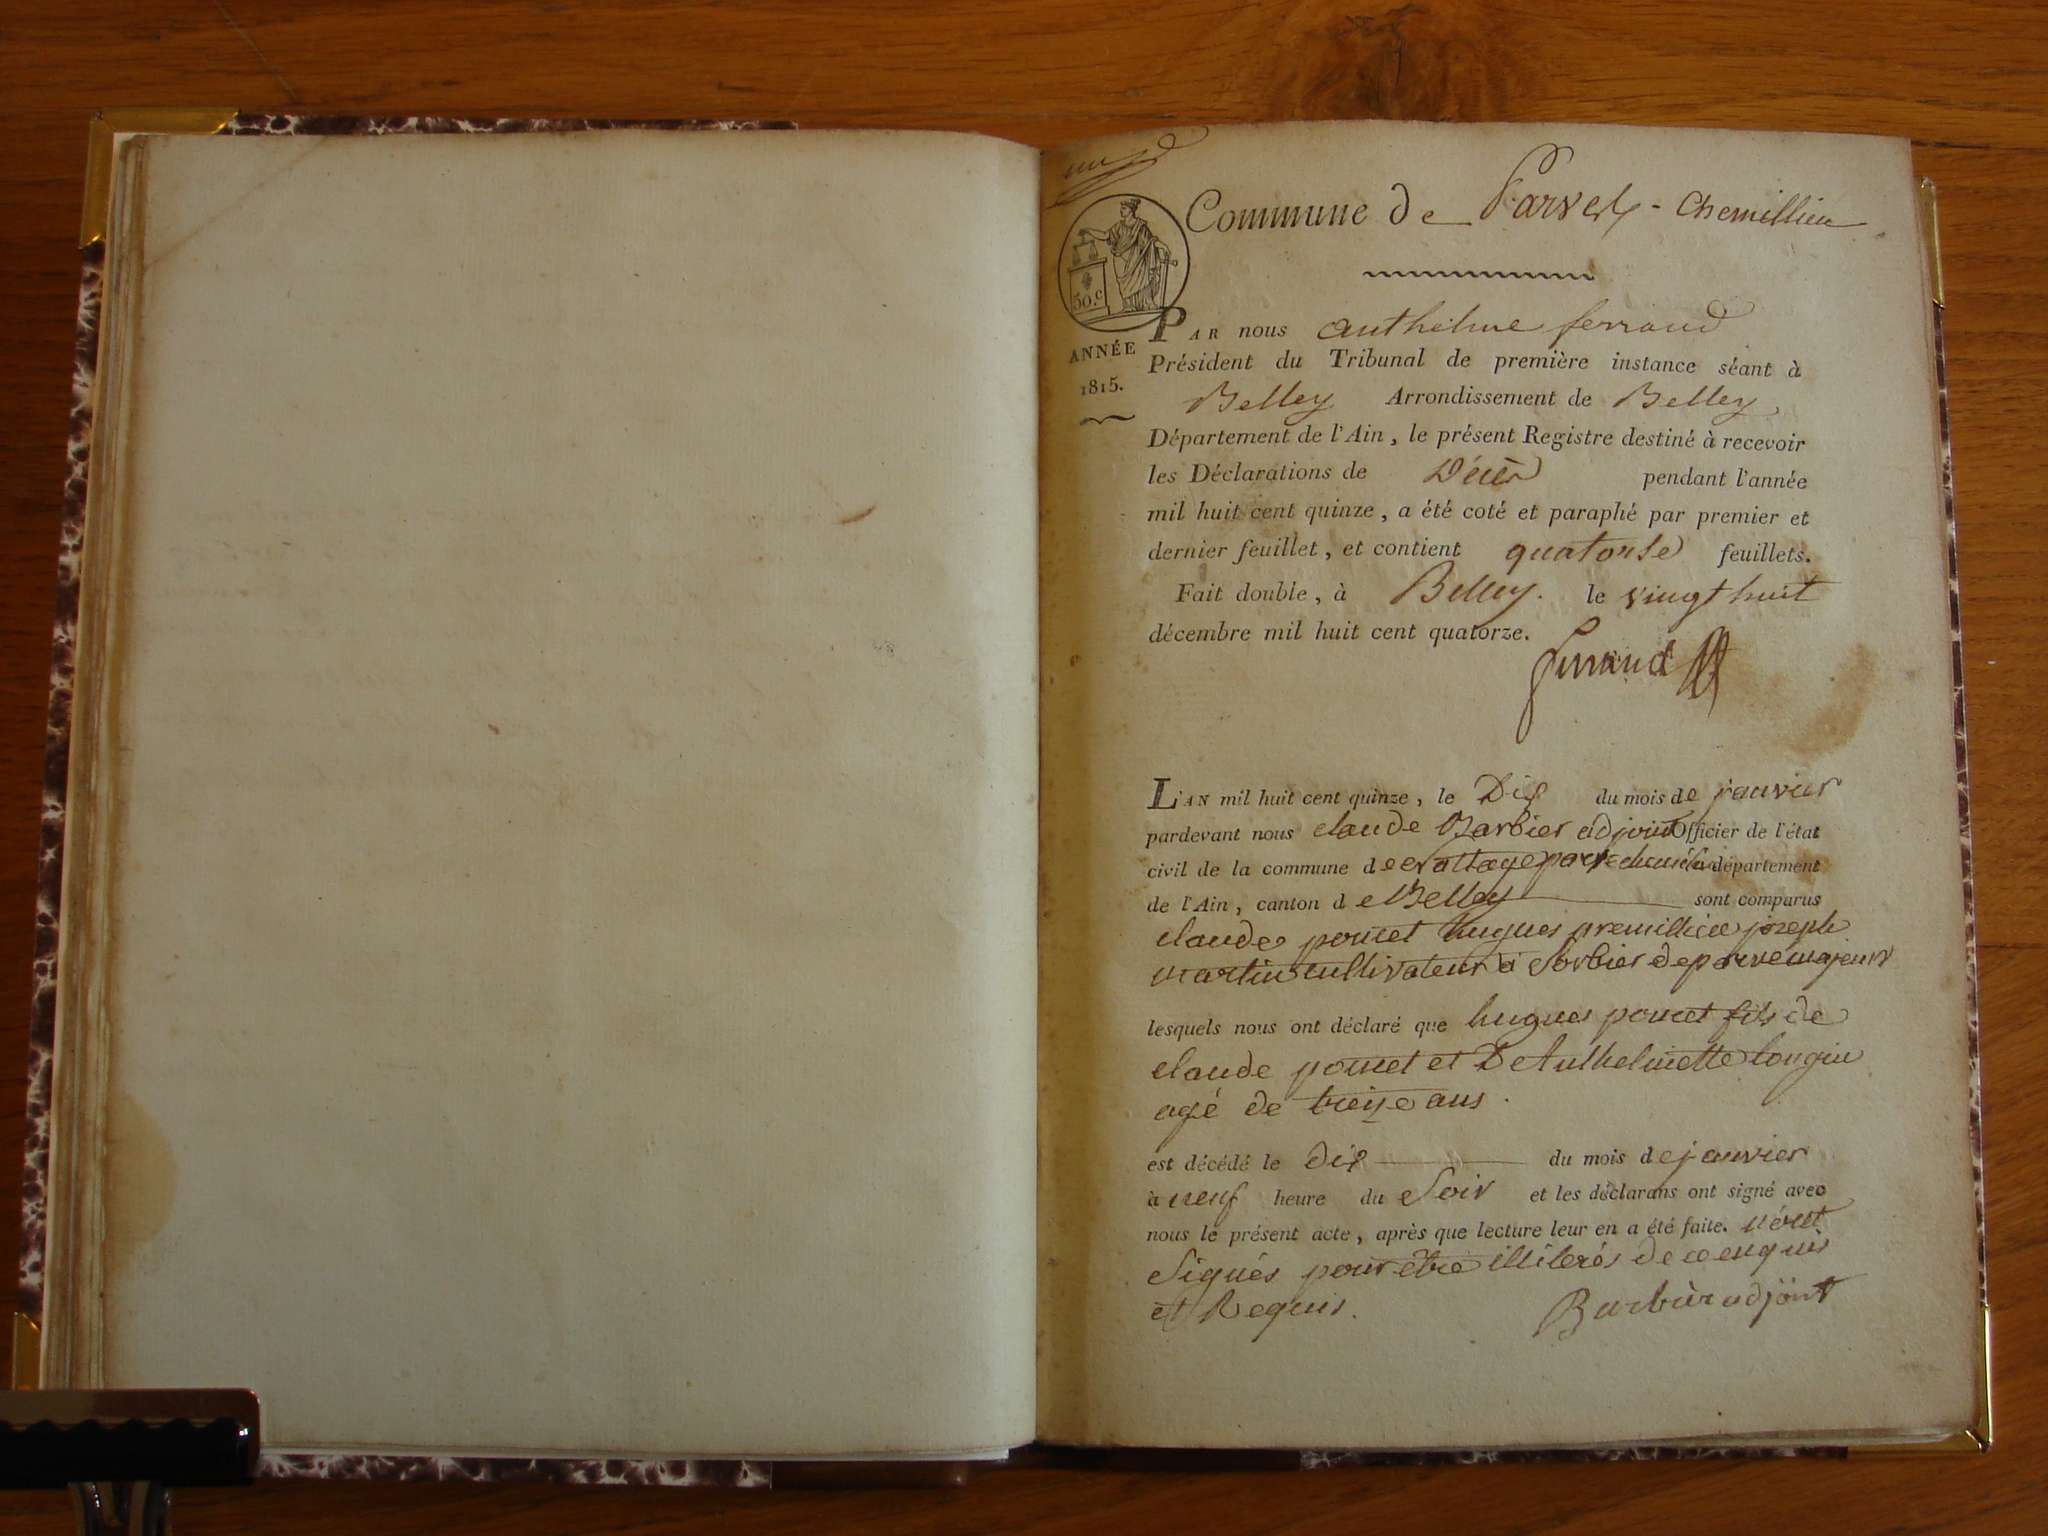 Commune de Parves - Chemillieu
50.c
ANNÉE
1815.
PAR nous anthelme ferrand
Président du Tribunal de première instance séant à
Belley Arrondissement de Belley
Département de l'Ain, le présent Registre destiné à recevoir
les Déclarations de Décès pendant l'année
mil huit cent quinze, a été coté et paraphé par premier et
dernier feuillet, et contient quatorse feuillets.
Fait double, à Belley. le vingt huit
décembre mil huit cent quatorze.
ferrand
L'AN mil huit cent quinze, le Dix du mois de janvier
pardevant nous claude Barbier adjoint Officier de l'état
civil de la commune de département
de l'Ain, canton de Belley sont comparus
claude poncet hugues premillieu joseph
martin cultivateur à Sorbier de parve majeurs
lesquels nous ont déclaré que hugues poncet fils de
claude poncet et De Anthelmette longin
agé de treize ans.
est décédé le dix du mois de janvier
à neuf heure du Soir et les déclarans ont signé avec
nous le présent acte, après que lecture leur en a été faite. n'ont
Signés pour être illiterés de ce enquis
et Requis. Barbier adjoint